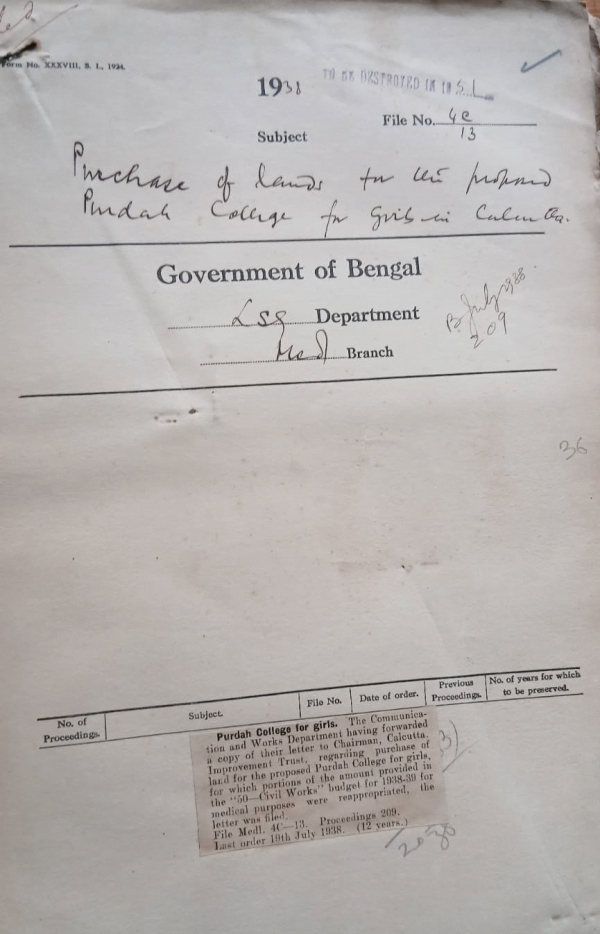 Form No. XXXVIII, B. I., 1934.
1938
TO BE DESTROYED IN 195
File No. 4C
13
Subject
Purchase of lands for the proposed
Purdah College for Girls in Calcutta.
Government of Bengal
LSG Department
Med Branch
B. July 1938.
209
36
No. of Proceedings.
Subject.
File No.
Date of order.
Previous Proceedings.
No. of years for which to be preserved.
Purdah College for girls. The Communica-
tion and Works Department having forwarded
a copy of their letter to Chairman, Calcutta,
Improvement Trust, regarding purchase of
land for the proposed Purdah College for girls,
for which portions of the amount provided in
the "50—Civil Works" budget for 1938-39 for
medical purposes were reappropriated, the
letter was filed.
File Medl. 4C—13. Proceedings 209.
Last order 19th July 1938. (12 years.)